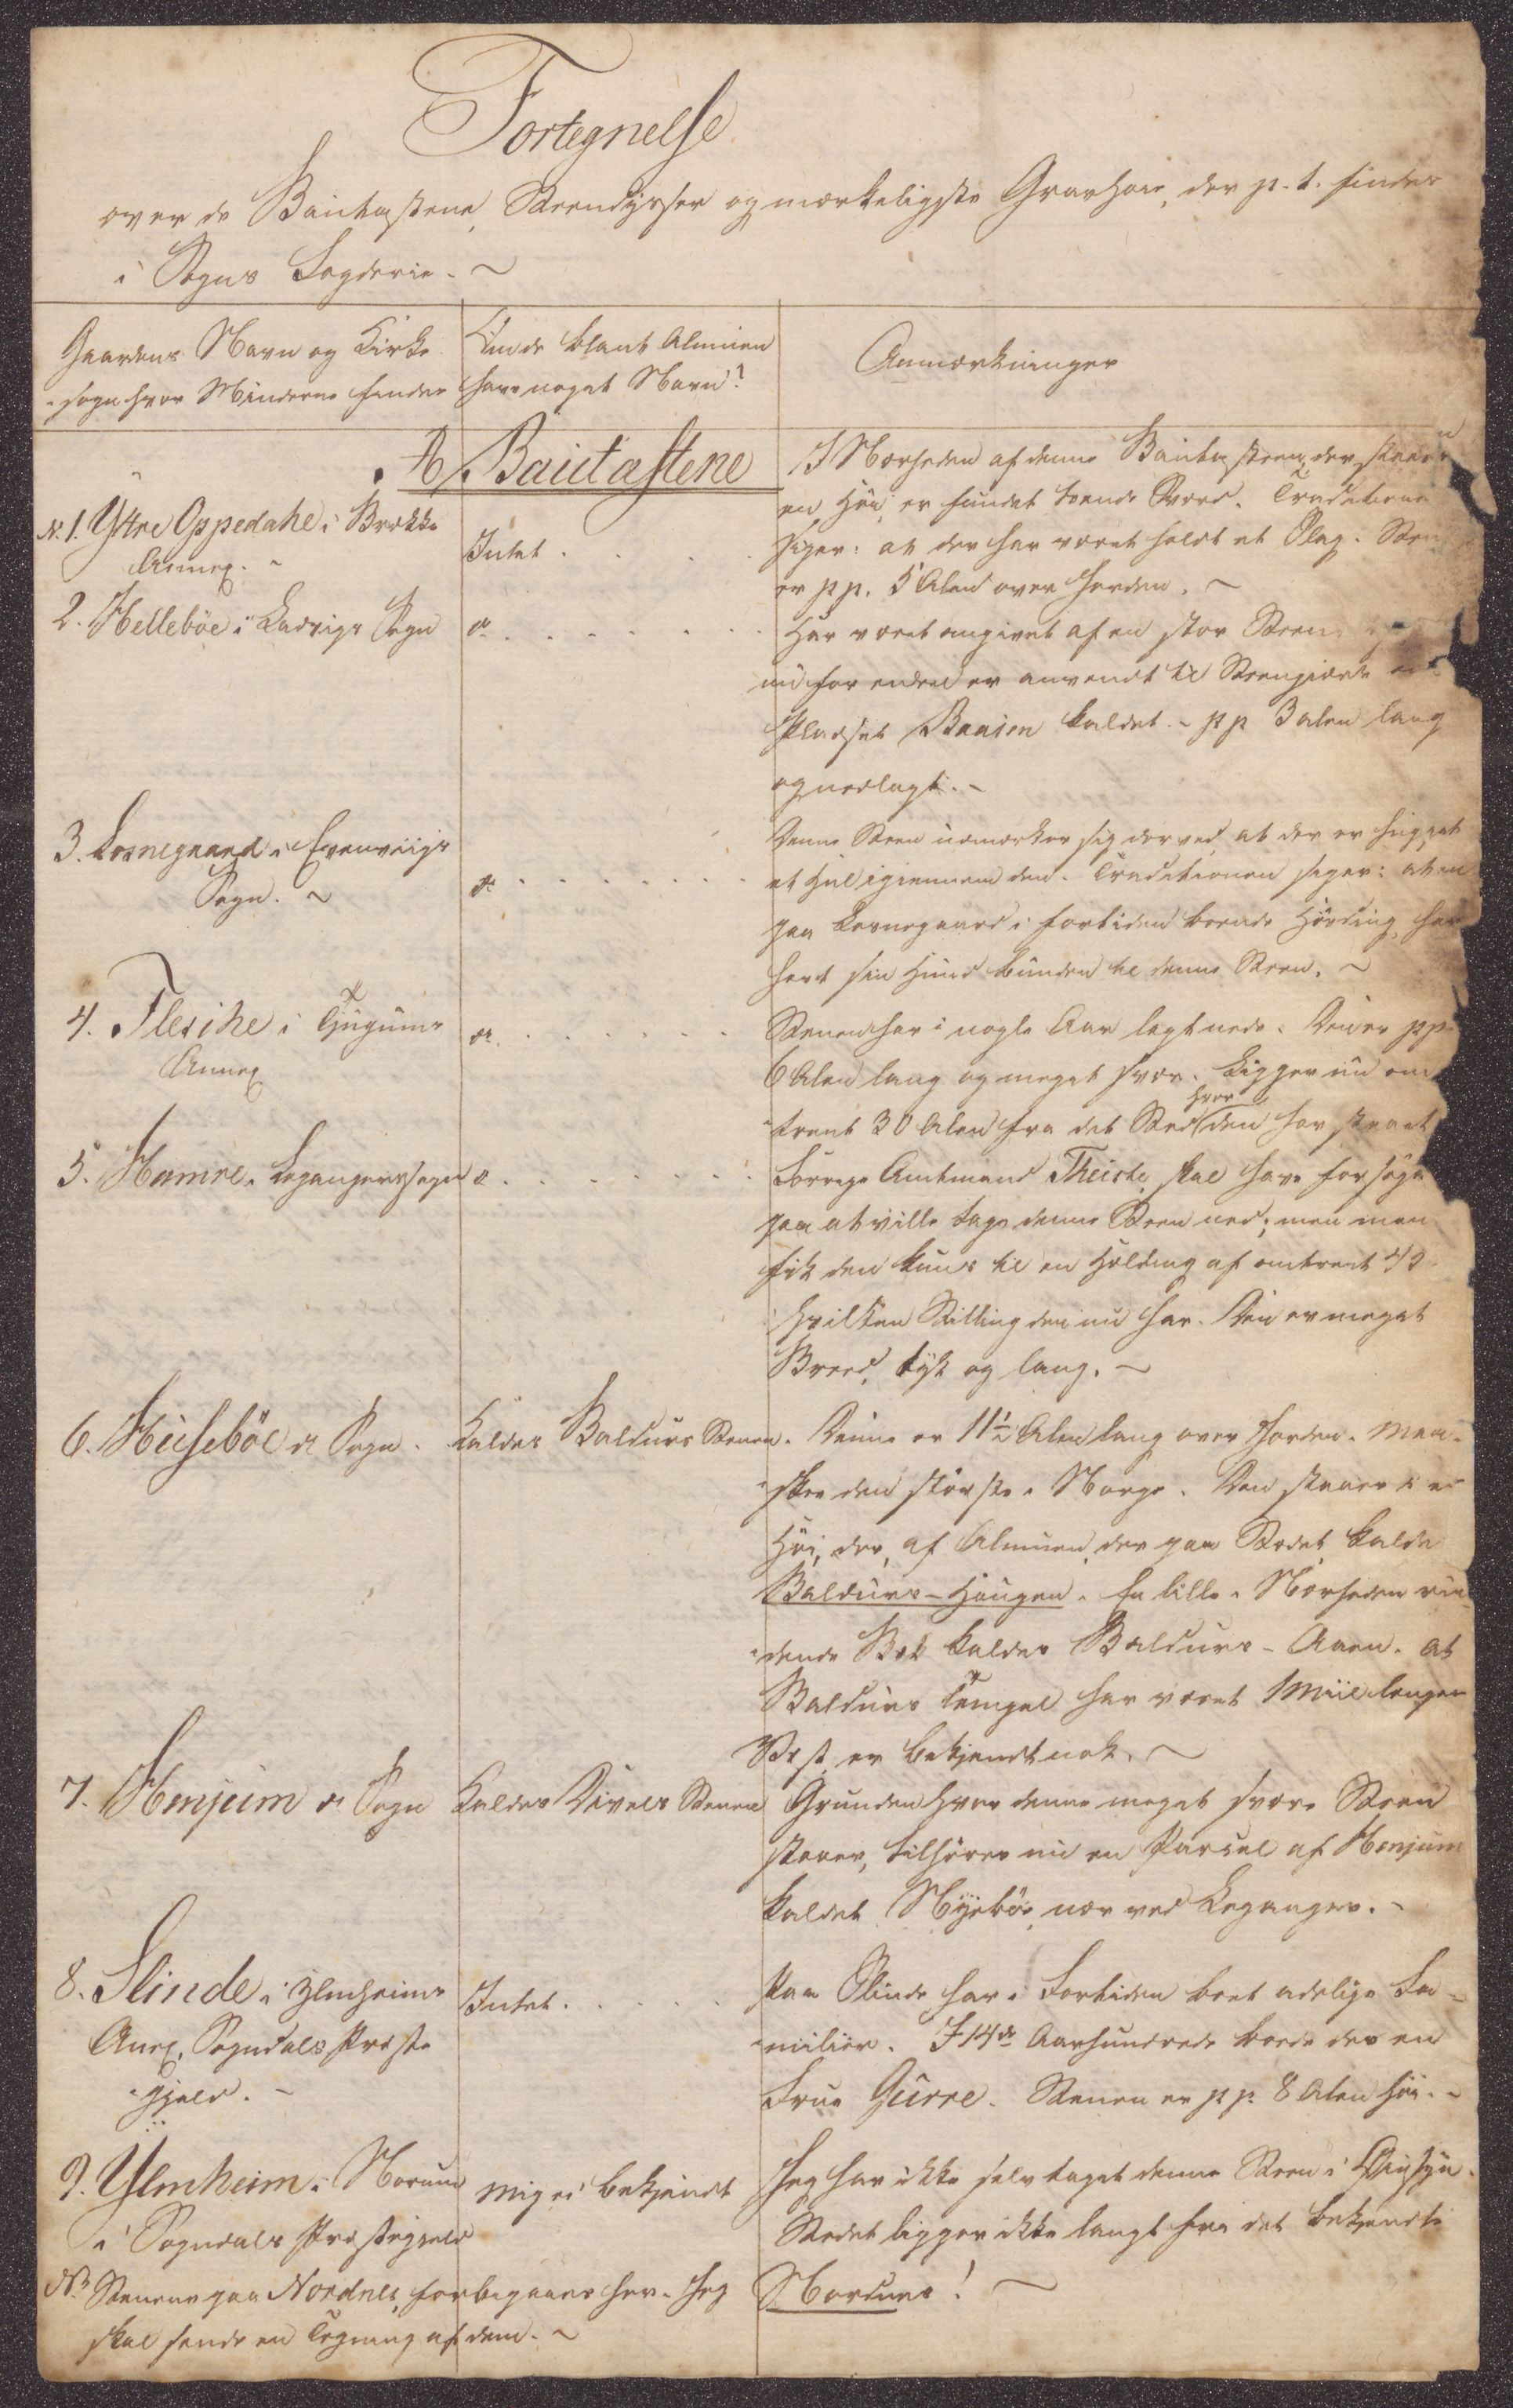 Fortegnelse
over de Bautastene, Steendysser og mærkeligste Gravhøie, der p.t. findes
i Sogns Fogderie. ~
Gaardens Navn og Kirke
-sogn hvor Minderne findes
Om de blant Almuen
have noget Navn?
Anmærkninger
A. Bautastene
N. 1. Yttre Oppedahl i Brække
Annex. ~
Intet . . . .
I Nærheden af denne Bautasteen, der staaer
en Høi, er fundet tvende Sværd. Traditionen
siger: at der har været holdt et Slag. Steenen
er pp. 5 Alen over Jorden. ~
2. Hellebøe i Ladvigs Sogn
do . . . . . . .
Har været omgivet af en stor Steen
nu for enden er anvendt til Steengierde
Pladset Baaien kaldet. ~ pp 3 alen lang
og nedlagt. ~
3. Losnegaard i Evenviigs
Sogn. ~
do . . . . . . .
Denne Steen udmærker sig derved, at der er hugget
et Hul igiennem den. Traditionen siger: at en
paa Losnegaard i Fortiden boende Høvding, har
havt sin Hund bunden til denne Steen. ~
4. Flesche i Tjugums
Annex
do . . . . . .
Stenen har i nogle Aar lagt nede. Den er pp
6 Alen lang og meget svær. Ligger nu om
-trent 30 Alen fra det Sted hvor den har staaet
5. Hamre i Leganger sogn
do . . . . . . .
Forrige Amtmand Theiste, skal have forsøgt
paa at ville tage denne Steen ned; men man
fik den kuns til en Helding af omtrent 45
i hvilken Stilling den nu har. Den er meget
Breed, tyk og lang. ~
6. Husebøe do Sogn.
Kaldes Baldurs Stenen.
Denne er 11½ Alen lang over Jorden. Maa-
-skee den største i Norge. Den staaer i en
Høi, der, af Almuen, der paa Stedet kaldes
Baldurs-Hougen. En lille i Nærheden rin
-dende Bæk kaldes Baldurs-Aaen. At
Baldurs Tempel har været 1 Miil længer
Vest, er bekjendt nok. ~
7. Henjum do Sogn
Kaldes Divels Stenen
Grunden hvor denne meget svære Steen
staaer, tilhører nu en Parsel af Henjum
kaldet Nyebøe, nær ved Leganger. ~
8. Slinde i Ylmheims
Anex, Sogndals Præste
-gjeld. ~
Intet. . . . .
Paa Slinde har i Fortiden boet adelige Fa-
-milier. I 14de Aarhundrede boede der en
Frue Gurre. Stenen er pp. 8 Alen høi. ~
9. Ylmheim i Norum
i Sogndals Præstegjeld
mig ei bekjendt
Jeg har ikke selv taget denne Steen i Øiesyn.
Stedet ligger ikke langt fra det bekjendte
Nordnes! ~
NB Stenene paa Nordnes, forbigaaes her. Jeg
skal sende en Tegning af dem. ~